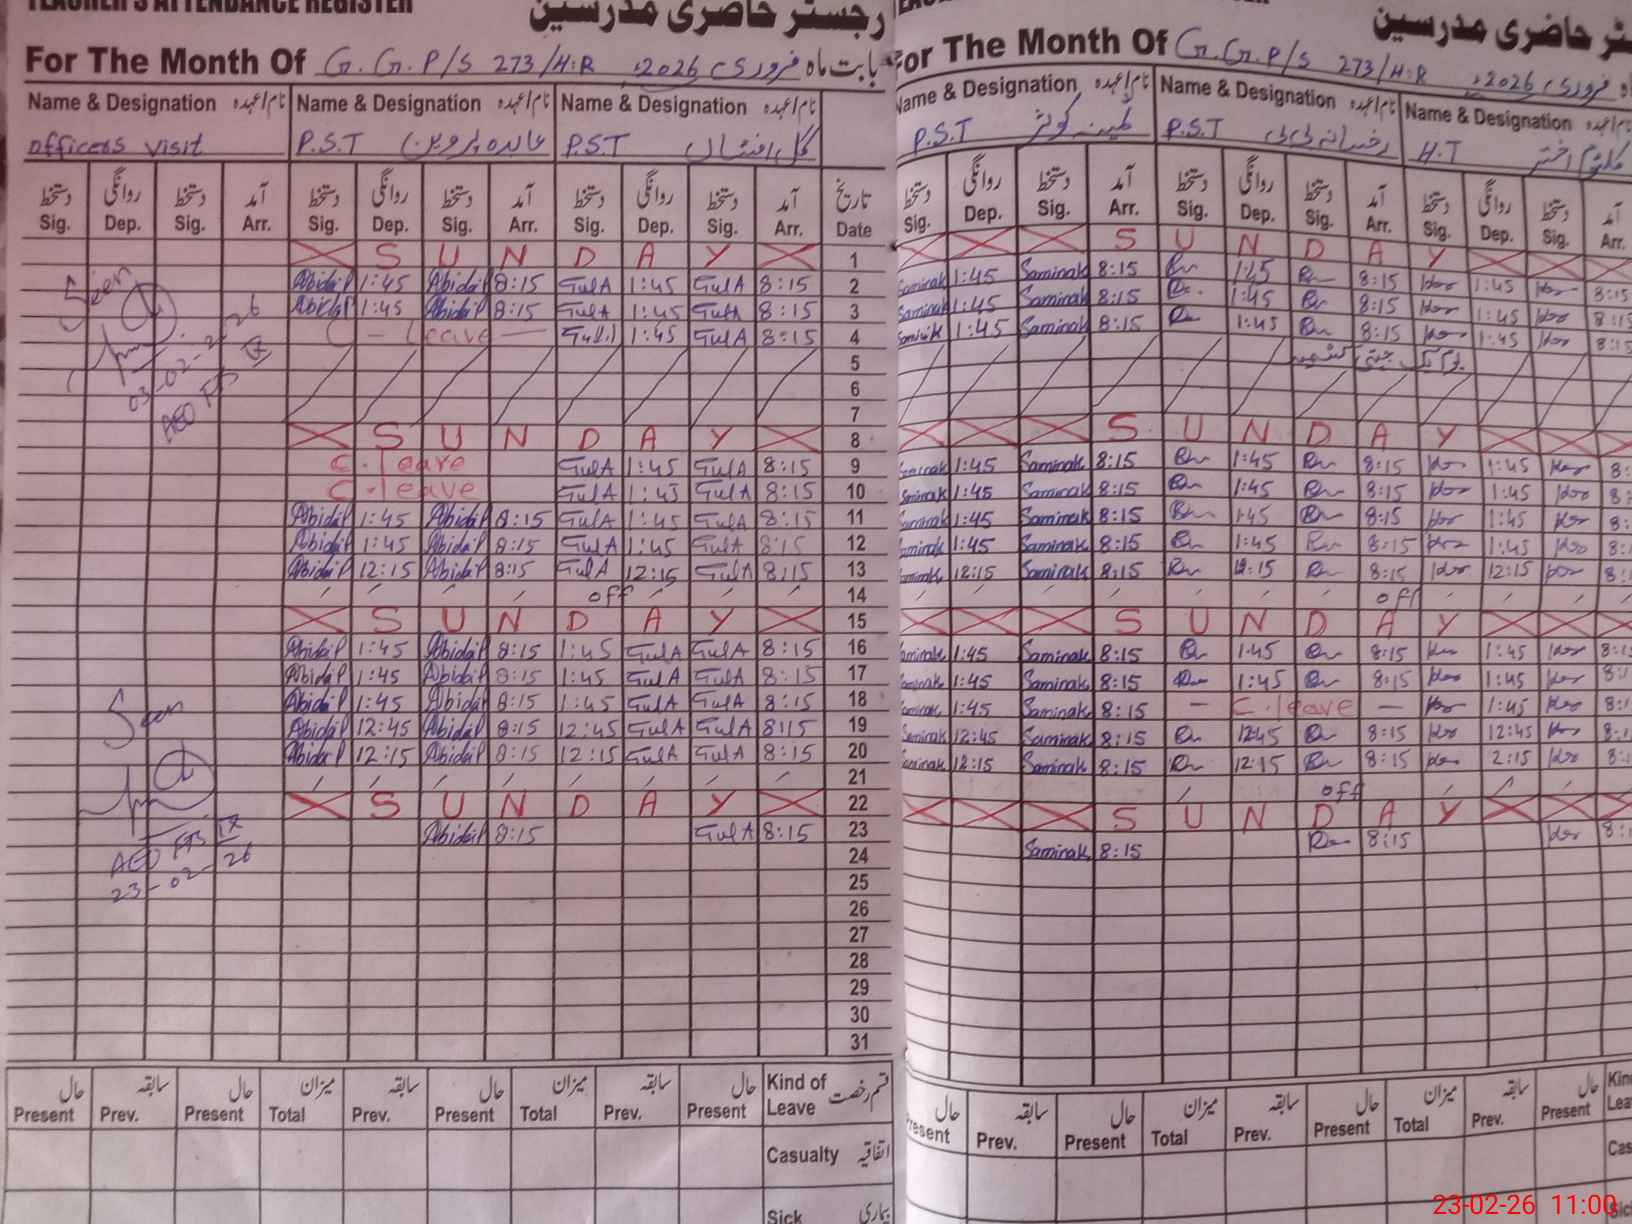 TEACHER'S ATTENDANCE REGISTER رجسٹر حاضری مدرسین
For The Month Of G.G.P/S 273/H:R بابت ماہ فروری 2026
Name & Designation نام/عہدہ Name & Designation نام/عہدہ Name & Designation نام/عہدہ
officers visit P.S.T عابدہ پروین P.S.T گل افشاں
دستخط روانگی دستخط آمد دستخط روانگی دستخط آمد دستخط روانگی دستخط آمد تاریخ
Sig. Dep. Sig. Arr. Sig. Dep. Sig. Arr. Sig. Dep. Sig. Arr. Date
S U N D A Y 1
Abidal 1:45 Abidal 8:15 GulA 1:45 GulA 8:15 2
Abidal 1:45 Abidal 8:15 GulA 1:45 GulA 8:15 3
C - Leave - GulA 1:45 GulA 8:15 4
5
6
7
S U N D A Y 8
C. Leave GulA 1:45 GulA 8:15 9
C. Leave GulA 1:45 GulA 8:15 10
AbidaP 1:45 AbidaP 8:15 GulA 1:45 GulA 8:15 11
AbidaP 1:45 AbidaP 8:15 GulA 1:45 GulA 8:15 12
AbidaP 12:15 AbidaP 8:15 GulA 12:15 GulA 8:15 13
off 14
S U N D A Y 15
AbidaP 1:45 AbidaP 8:15 1:45 GulA GulA 8:15 16
AbidaP 1:45 AbidaP 8:15 1:45 GulA GulA 8:15 17
AbidaP 1:45 AbidaP 8:15 1:45 GulA GulA 8:15 18
AbidaP 12:45 AbidaP 8:15 12:45 GulA GulA 8:15 19
AbidaP 12:15 AbidaP 8:15 12:15 GulA GulA 8:15 20
21
S U N D A Y 22
AbidaP 8:15 GulA 8:15 23
24
25
26
27
28
29
30
31
Seen
03-02-2026
AEO
Seen
AEO
23-02-26
حال سابقہ حال میزان سابقہ حال میزان سابقہ حال Kind of قسم رخصت
Present Prev. Present Total Prev. Present Total Prev. Present Leave
Casualty اتفاقیہ
Sick بیماری
رجسٹر حاضری مدرسین
For The Month Of G.G.P/S 273/H:R فروری 2026
Name & Designation نام/عہدہ Name & Designation نام/عہدہ Name & Designation نام/عہدہ
P.S.T ثمینہ کوثر P.S.T رخسانہ بی بی H.T کلثوم اختر
دستخط روانگی دستخط آمد دستخط روانگی دستخط آمد دستخط روانگی دستخط آمد
Sig. Dep. Sig. Arr. Sig. Dep. Sig. Arr. Sig. Dep. Sig. Arr.
S U N D A Y
Saminak 1:45 Saminak 8:15 1:45 8:15 1:45 8:15
Saminak 1:45 Saminak 8:15 1:45 8:15 1:45 8:15
Saminak 1:45 Saminak 8:15 1:45 8:15 1:45 8:15
یوم یک جہتی کشمیر
S U N D A Y
Saminak 1:45 Saminak 8:15 1:45 8:15 1:45 8:
Saminak 1:45 Saminak 8:15 1:45 8:15 1:45 8:
Saminak 1:45 Saminak 8:15 1:45 8:15 1:45 8:
Saminak 1:45 Saminak 8:15 1:45 8:15 1:45 8:
Saminak 12:15 Saminak 8:15 12:15 8:15 12:15 8:
off
S U N D A Y
Saminak 1:45 Saminak 8:15 1:45 8:15 1:45 8:1
Saminak 1:45 Saminak 8:15 1:45 8:15 1:45 8:1
Saminak 1:45 Saminak 8:15 - C. leave - 1:45 8:1
Saminak 12:45 Saminak 8:15 12:45 8:15 12:45 8:1
Saminak 12:15 Saminak 8:15 12:15 8:15 2:15 8:1
off
S U N D A Y
Saminak 8:15 8:15 8:1
حال سابقہ حال میزان سابقہ حال میزان سابقہ حال
Present Prev. Present Total Prev. Present Total Prev. Present
23-02-26 11:00